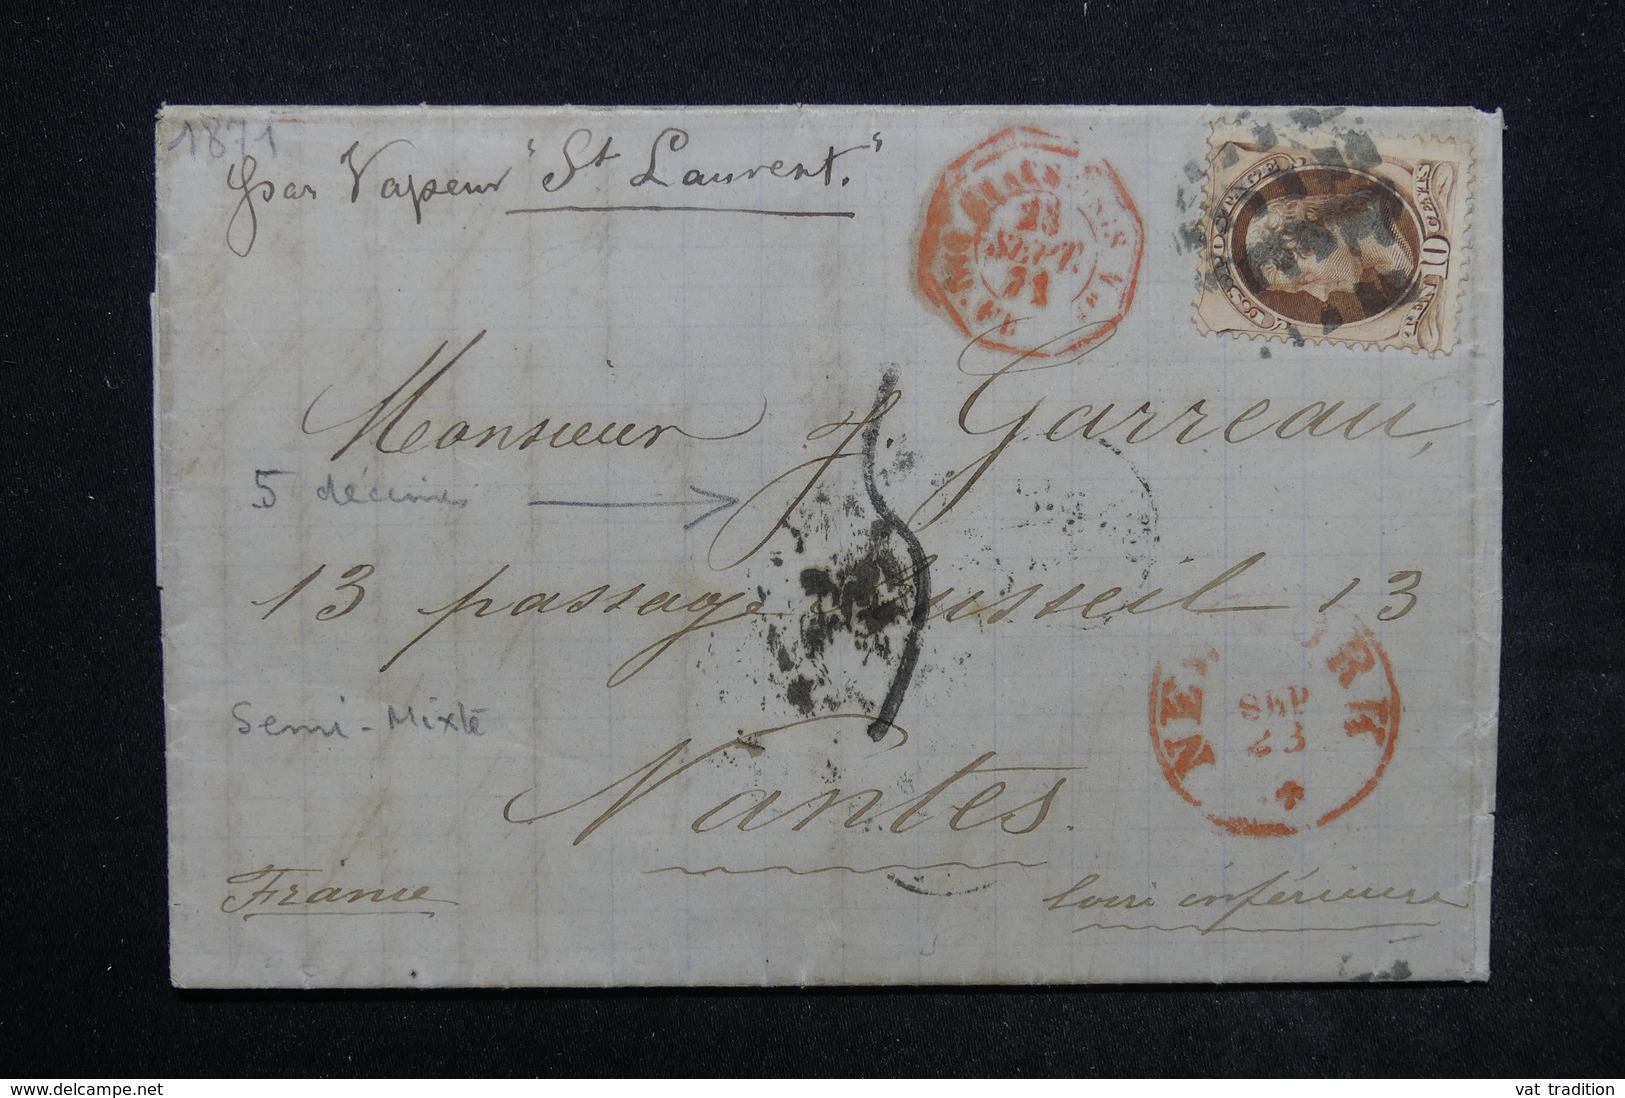 1871
par Vapeur "St Laurent."
23
SEPT.
71
U.S. POSTAGE
TEN 10 CENTS
Monsieur J. Garreau,
5 décimes
13 passage Russeil 13
NEW YORK
SEP
23
Semi-Mixte
Nantes
France
Loire inférieure
delcampe.net
vat tradition